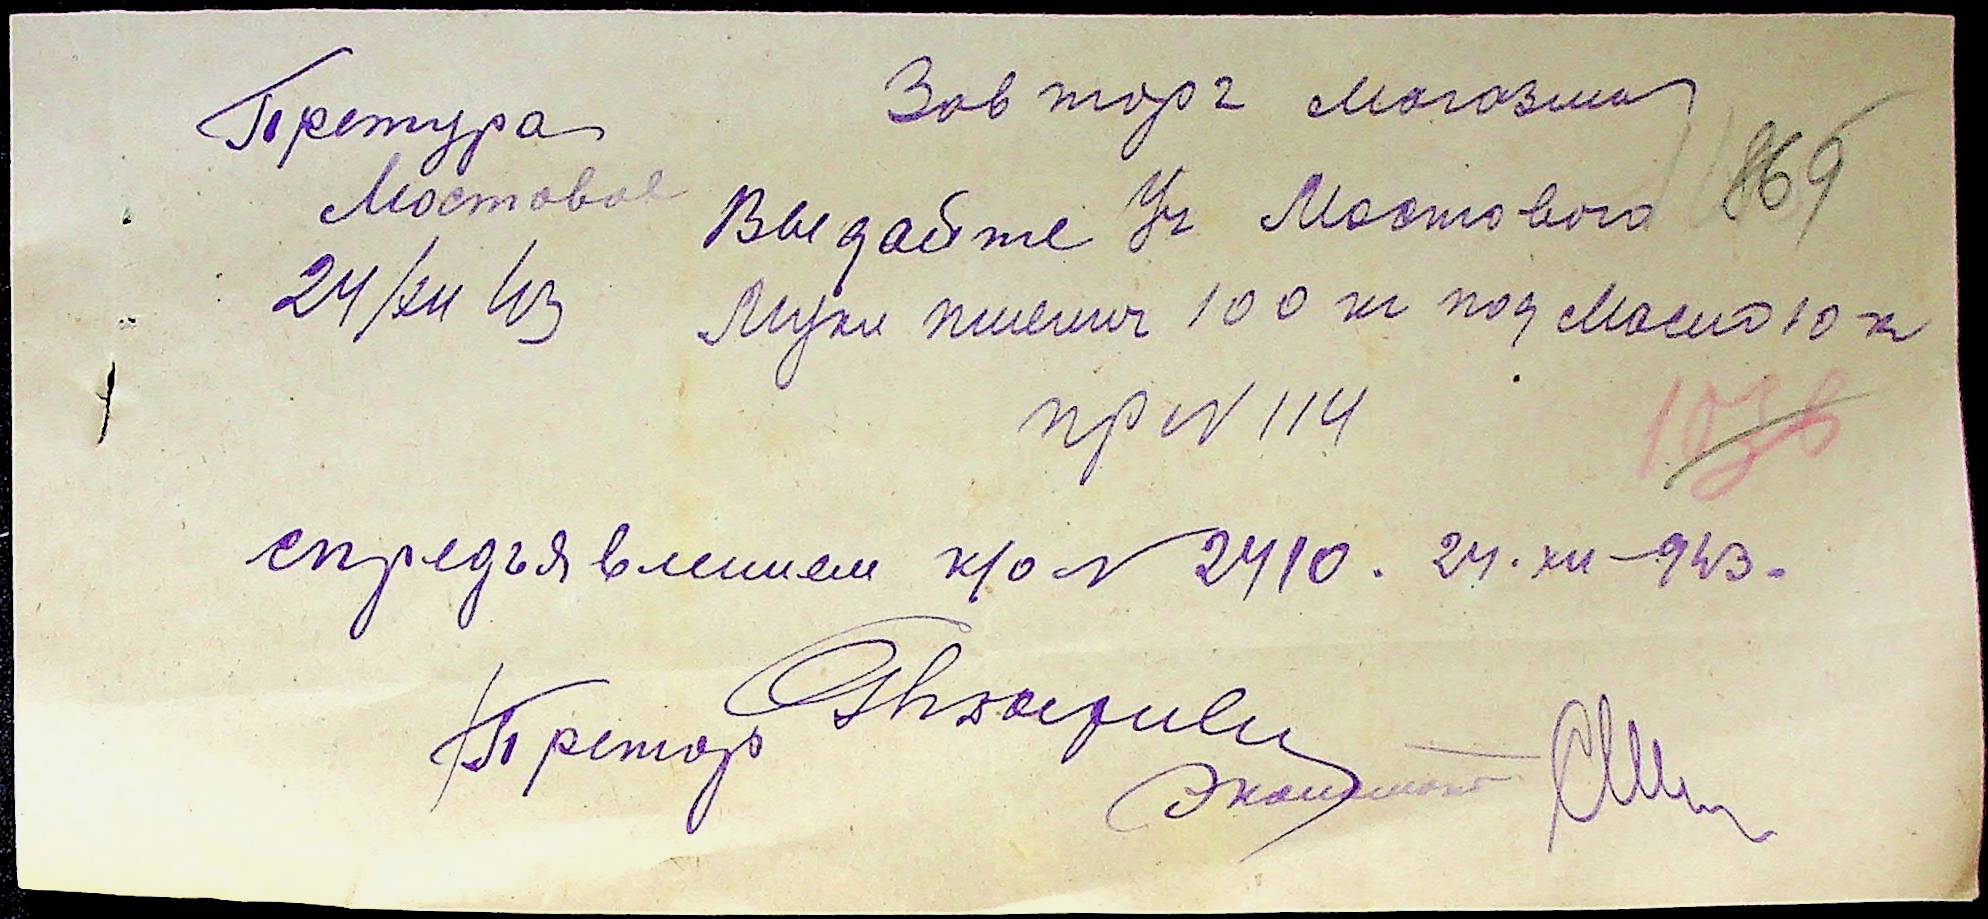 Претура
Мостовое
24/XII 43
Зав торг магазина
869
Выдайте Уч Мостового
Муки пшенич 100 кг под Масло 10 кг
пр № 114
спредъявлением к/о № 2410. 24.XII–943.
Претор
Экономист